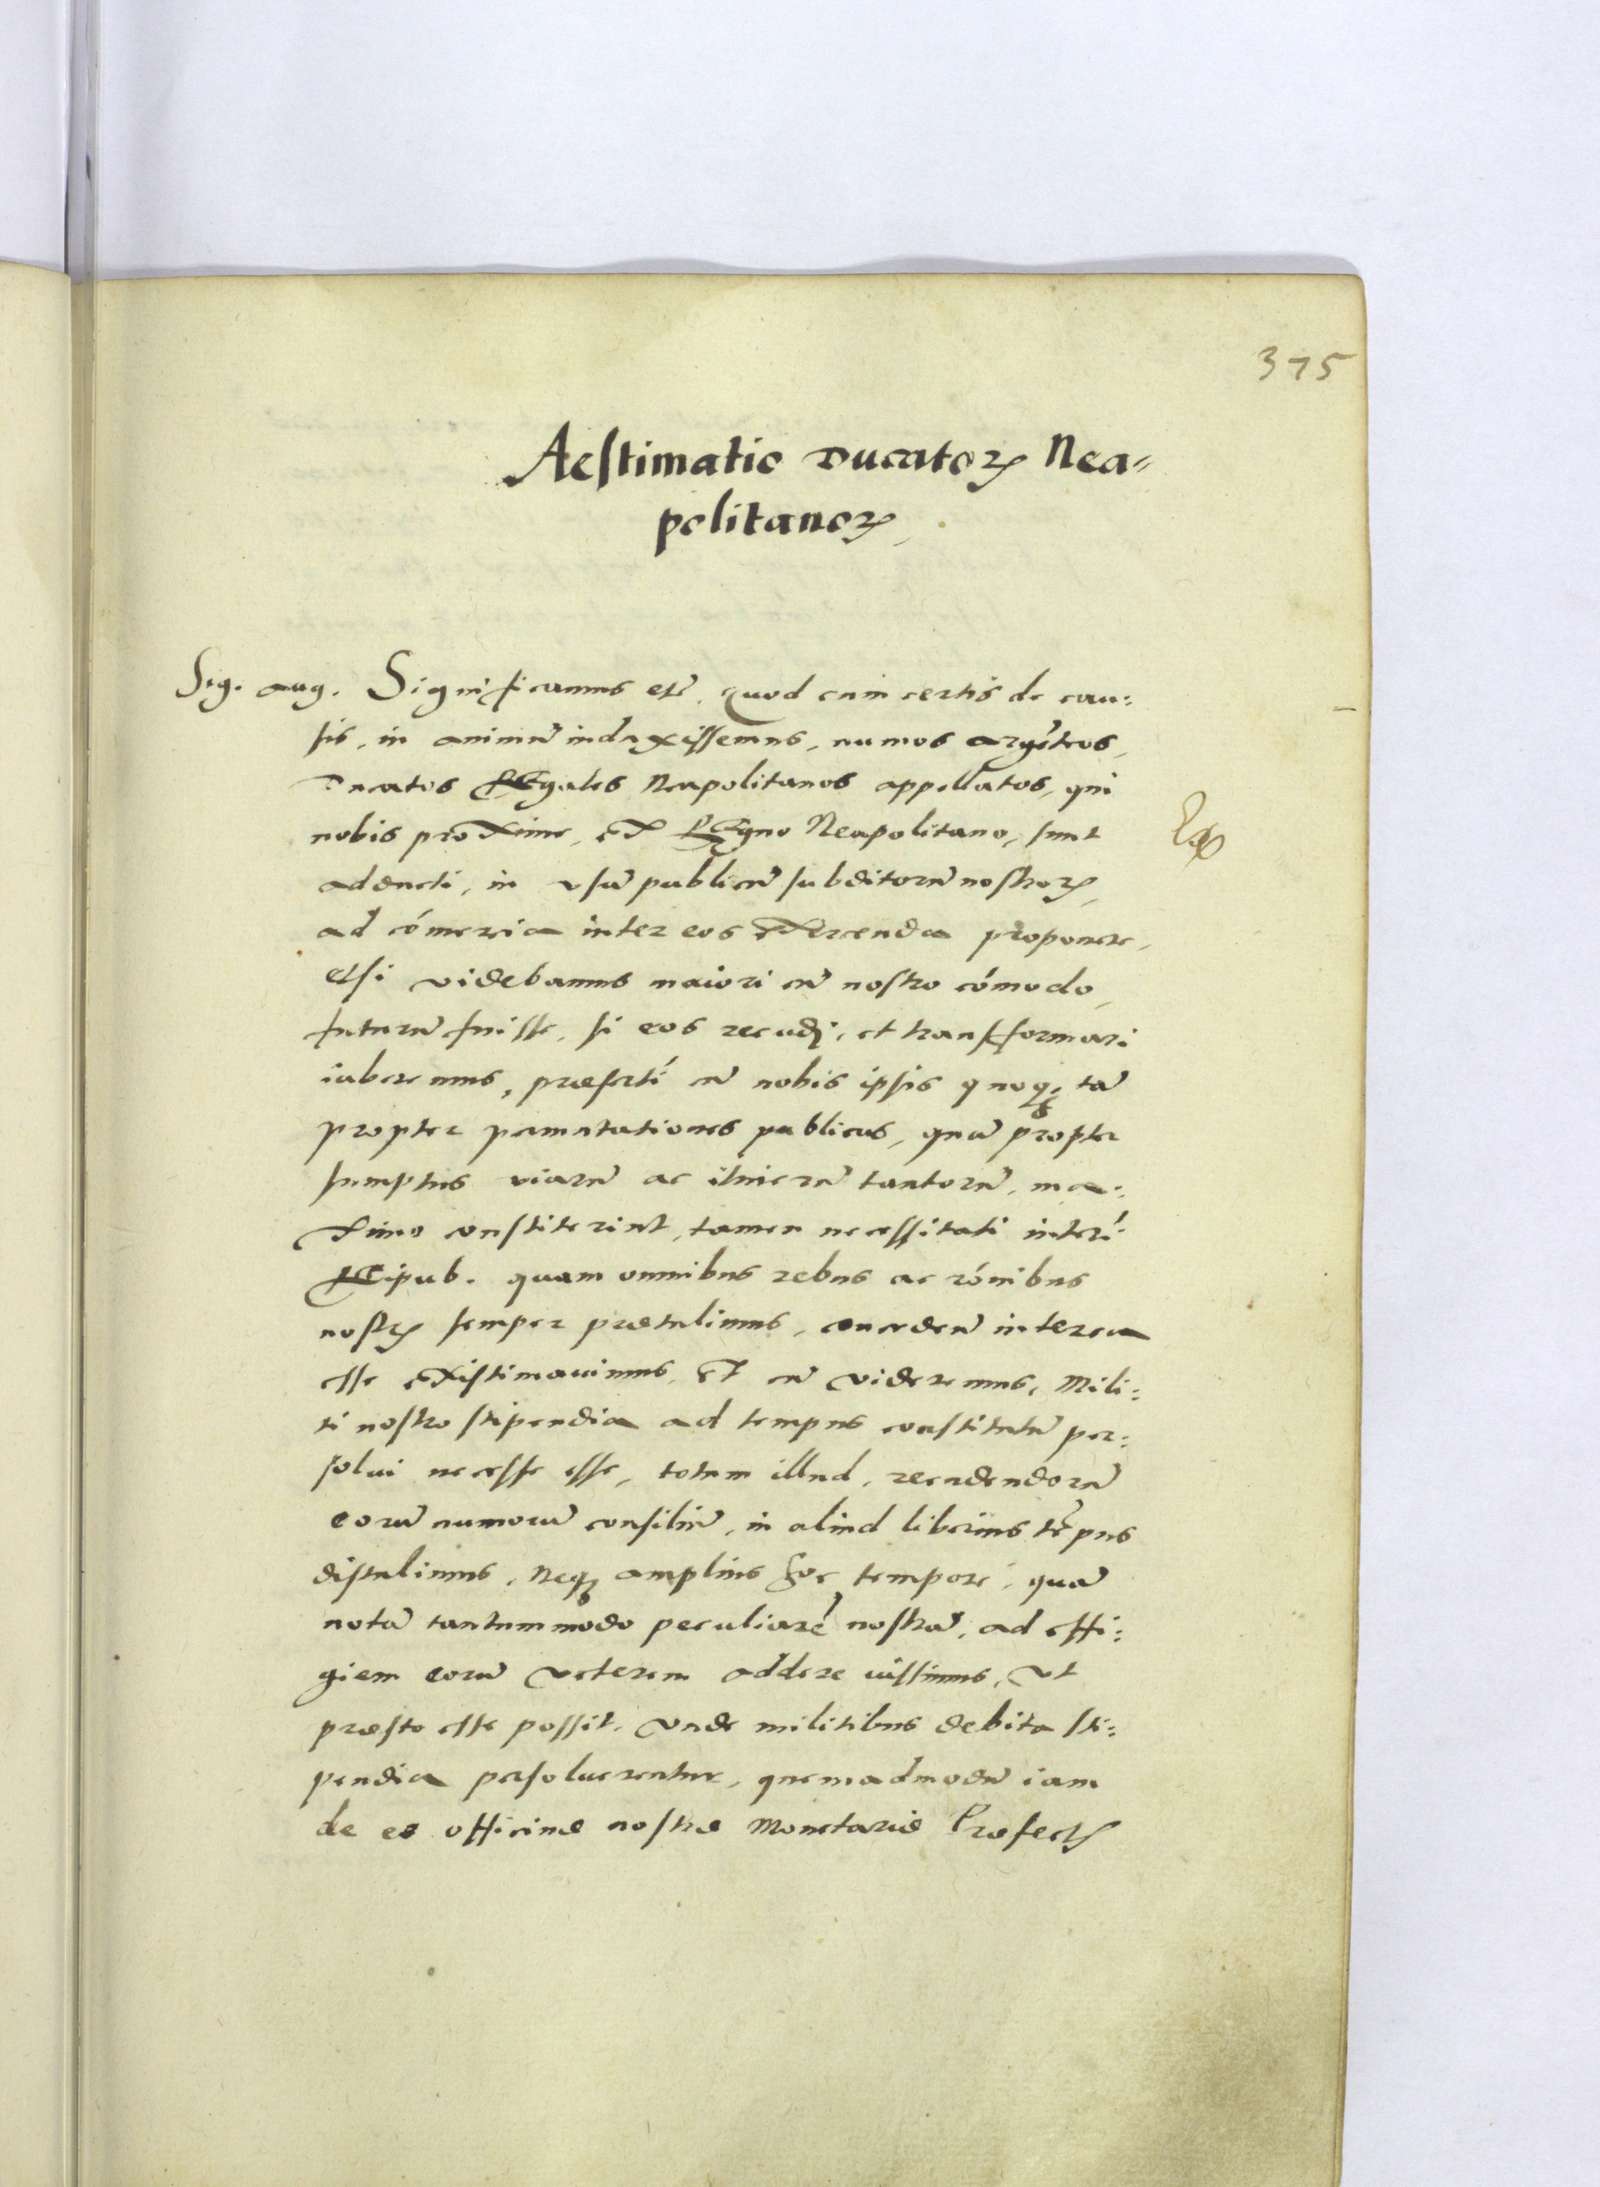 375
Aestimatio Ducatoꝝ Nea-
politanoꝝ
Sig. Aug. Significamus etc̃. Quod cum certis de cau:
sis, in animũ induxissemus, numos argẽteos,
Ducatos REgales Neapolitanos appellatos, qui
nobis proxime, ex REgno Neapolitano, sunt
aducti, in vsũ publicũ subditorũ nostroꝝ,
ad cõmercia inter eos exercenda proponere,
etsi videbamus maiori cũ nostro cõmodo,
futurũ fuisse, si eos recudi, et transformari
iuberemus, præsertĩ cũ nobis ipsis quoqꝫ tã
propter permutationes publicas, quã propter
sumptus viarũ ac itinerũ tantorũ, ma:
ximo constiterint, tamen necessitati interĩ
REipub. quam omnibus rebus ac rõnibus
nostꝝ semper prætulimus, concedendũ interea
esse existimauimus. Et cũ videremus, Mili:
ti nostro stipendia ad tempus constitutũ per:
solui necesse esse, totum illud, recudendorũ
eorũ numorũ consiliũ, in aliud liberius tẽpus
distulimus, Neqꝫ amplius hoc tempore, quã
notã tantummodo peculiarẽ nostrã, ad effi:
giem eorũ veterem addere iussimus, vt
præsto esse possit, vnde militibus debita sti:
pendia persoluerentur, quemadmodũ iam
de eo officinæ nostræ Monetariæ Præfectꝭ